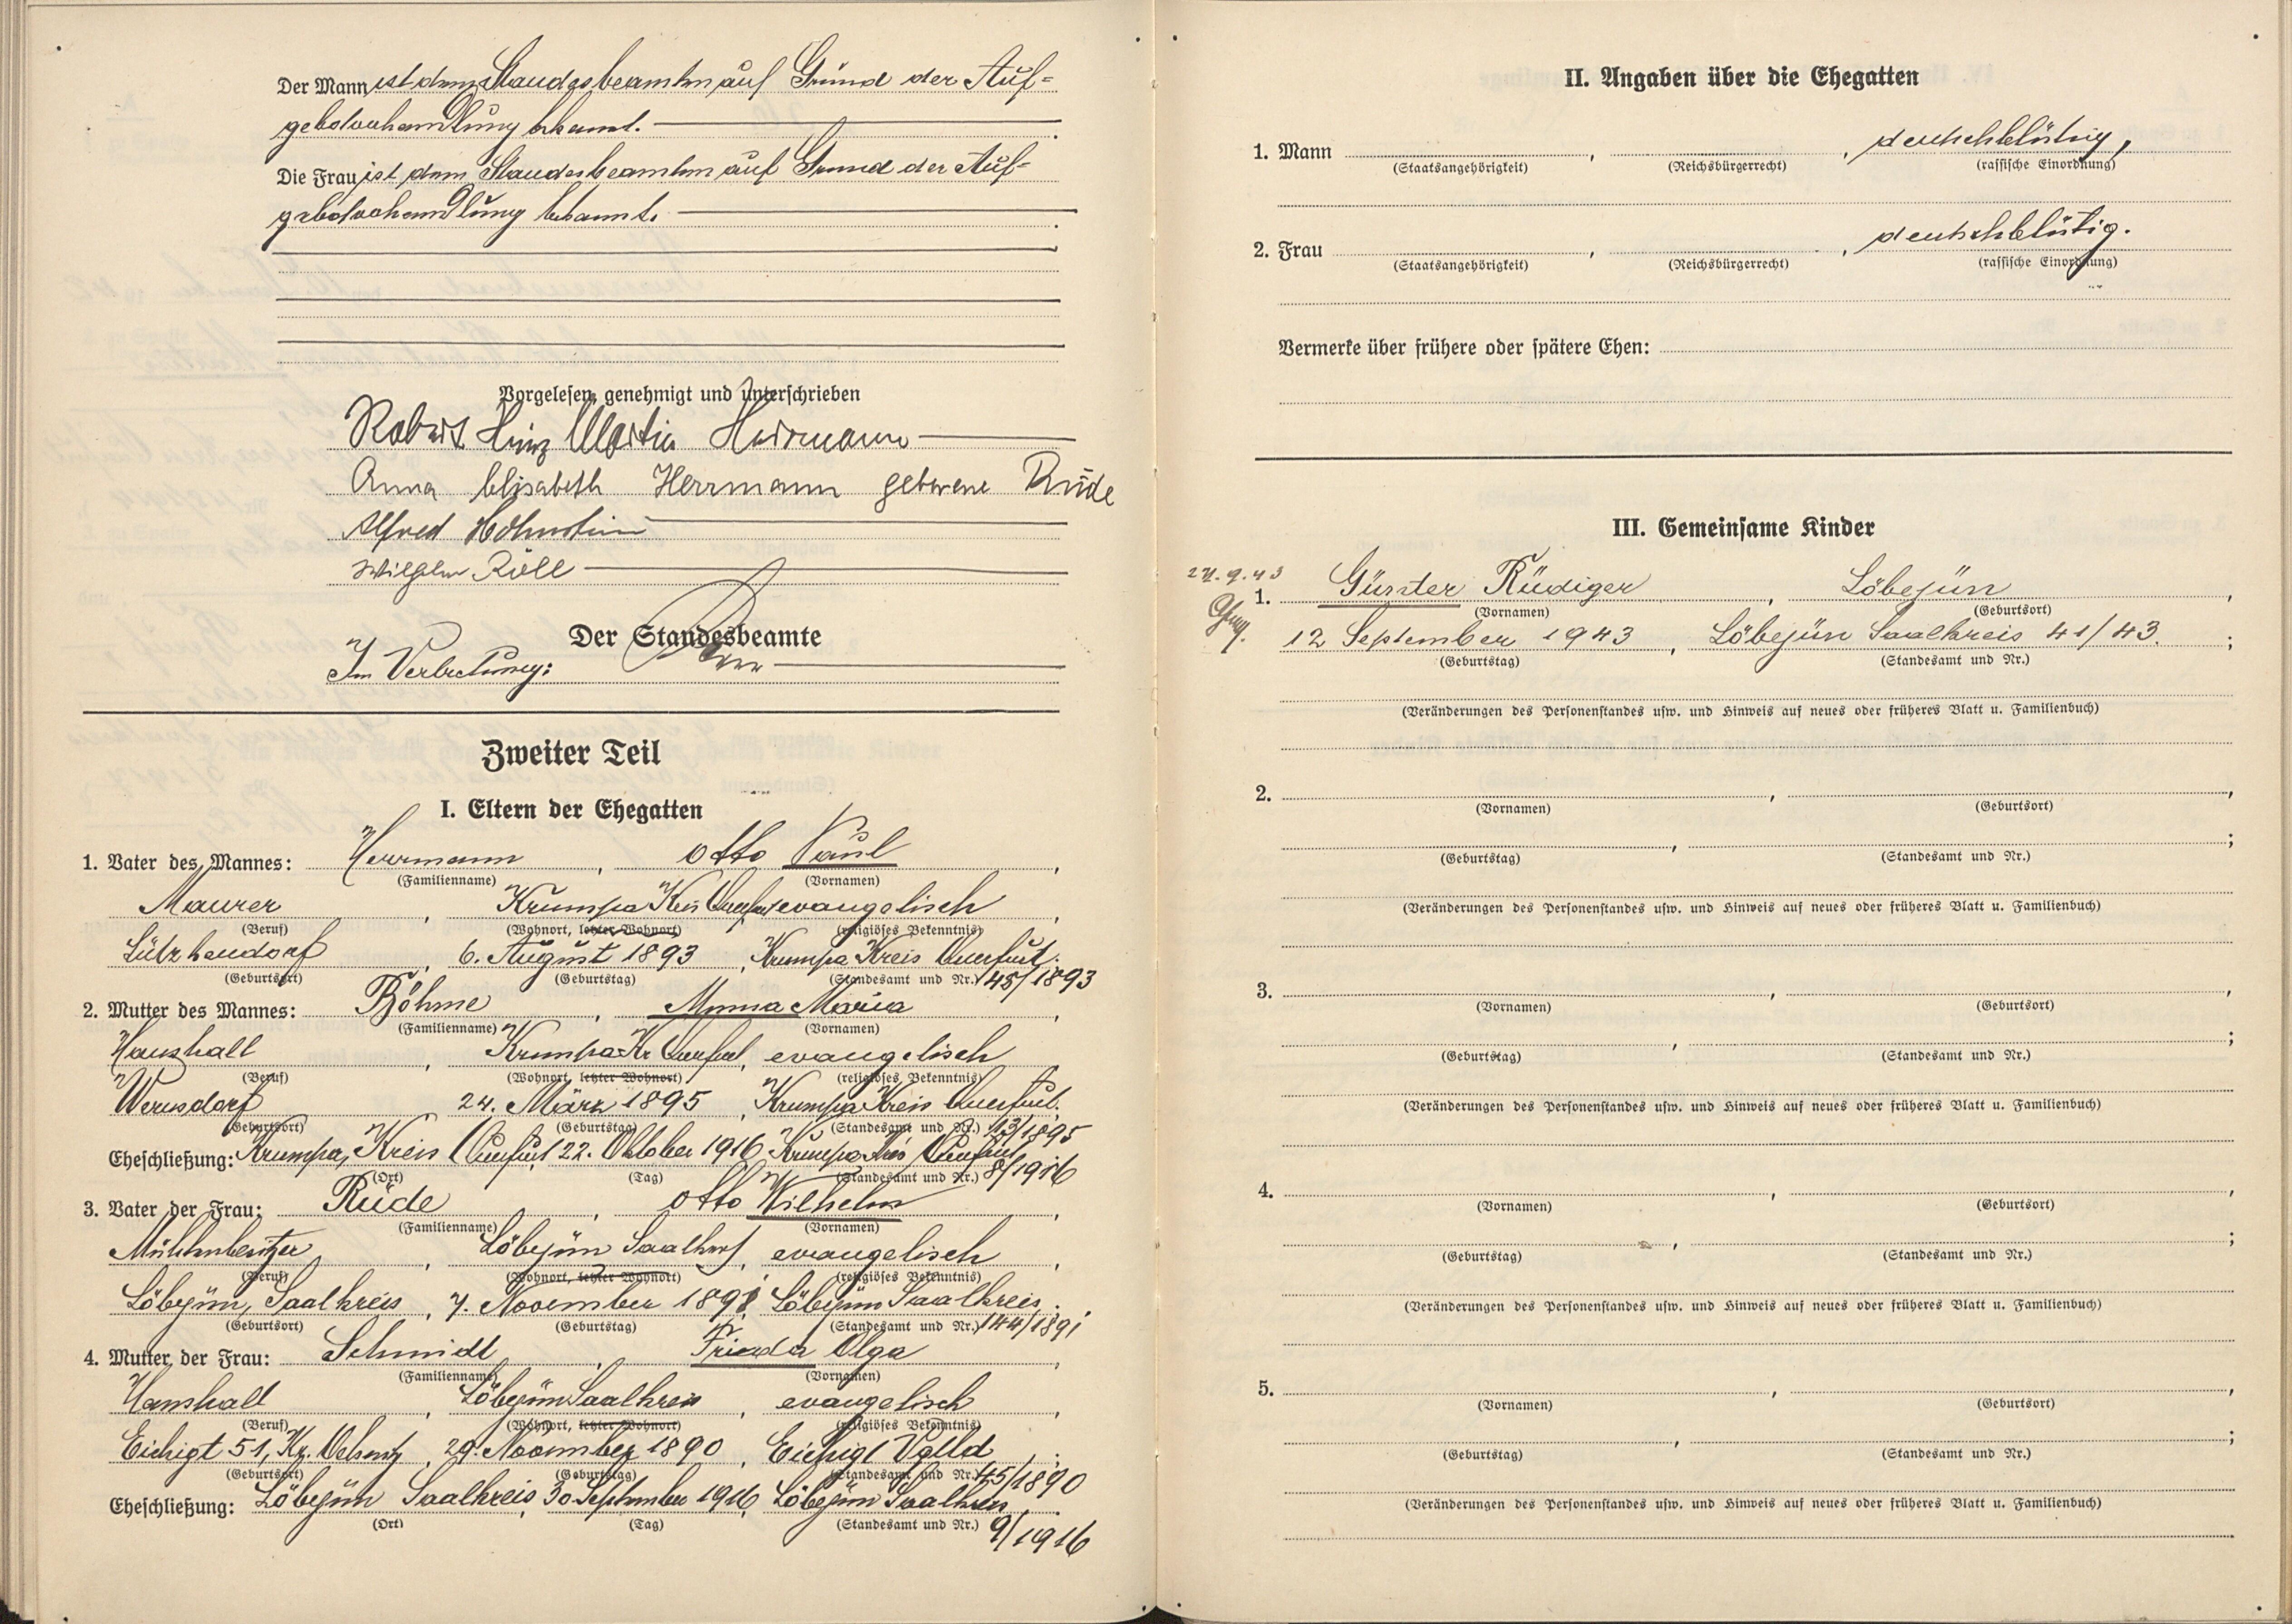 Der Mann ist dem Standesbeamten auf Grund der Auf-
gebotsverhandlung bekannt.
Die Frau ist dem Standesbeamten auf Grund der Auf-
gebotsverhandlung bekannt.
Vorgelesen, genehmigt und unterschrieben
Robert Heinz Martin Herrmann
Anna Elisabeth Herrmann geborene Rüde
Alfred Hohnstein
Wilhelm Röll
Der Standesbeamte
In Vertretung:
Zweiter Teil
I. Eltern der Ehegatten
1. Vater des Mannes: Herrmann, Otto Paul,
(Familienname) (Vornamen)
Maurer, Krumpa Kreis Querfurt evangelisch,
(Beruf) (Wohnort, letzter Wohnort) (religiöses Bekenntnis)
Lützkendorf, 6. August 1893, Krumpa Kreis Querfurt.
(Geburtsort) (Geburtstag) (Standesamt und Nr.) 45/1893
2. Mutter des Mannes: Böhme, Minna Maria,
(Familienname) (Vornamen)
Haushalt, Krumpa Kr Querfurt, evangelisch,
(Beruf) (Wohnort, letzter Wohnort) (religiöses Bekenntnis)
Wernsdorf, 24. März 1895, Krumpa Kreis Querfurt.
(Geburtsort) (Geburtstag) (Standesamt und Nr.) 13/1895
Eheschließung: Krumpa, Kreis Querfurt, 22. Oktober 1916, Krumpa Kreis Querfurt
(Ort) (Tag) (Standesamt und Nr.) 8/1916
3. Vater der Frau: Rüde, Otto Wilhelm,
(Familienname) (Vornamen)
Mühlenbesitzer, Löbejün Saalkreis, evangelisch,
(Beruf) (Wohnort, letzter Wohnort) (religiöses Bekenntnis)
Löbejün, Saalkreis, 7. November 1891, Löbejün Saalkreis.
(Geburtsort) (Geburtstag) (Standesamt und Nr.) 144/1891
4. Mutter der Frau: Schmidt, Frieda Olga,
(Familienname) (Vornamen)
Haushalt, Löbejün Saalkreis, evangelisch,
(Beruf) (Wohnort, letzter Wohnort) (religiöses Bekenntnis)
Eichigt 51, Kr. Oelsnitz, 29. November 1890, Eichigt Vgtld.
(Geburtsort) (Geburtstag) (Standesamt und Nr.) 45/1890
Eheschließung: Löbejün Saalkreis, 30. September 1916, Löbejün Saalkreis
(Ort) (Tag) (Standesamt und Nr.) 9/1916
II. Angaben über die Ehegatten
1. Mann , , deutschblütig,
(Staatsangehörigkeit) (Reichsbürgerrecht) (rassische Einordnung)
2. Frau , , deutschblütig.
(Staatsangehörigkeit) (Reichsbürgerrecht) (rassische Einordnung)
Vermerke über frühere oder spätere Ehen:
III. Gemeinsame Kinder
24.9.43
1. Günter Rüdiger, Löbejün,
(Vornamen) (Geburtsort)
12 September 1943, Löbejün Saalkreis 41/43.;
(Geburtstag) (Standesamt und Nr.)
(Veränderungen des Personenstandes usw. und Hinweis auf neues oder früheres Blatt u. Familienbuch)
2. , ,
(Vornamen) (Geburtsort)
, ;
(Geburtstag) (Standesamt und Nr.)
(Veränderungen des Personenstandes usw. und Hinweis auf neues oder früheres Blatt u. Familienbuch)
3. , ,
(Vornamen) (Geburtsort)
, ;
(Geburtstag) (Standesamt und Nr.)
(Veränderungen des Personenstandes usw. und Hinweis auf neues oder früheres Blatt u. Familienbuch)
4. , ,
(Vornamen) (Geburtsort)
, ;
(Geburtstag) (Standesamt und Nr.)
(Veränderungen des Personenstandes usw. und Hinweis auf neues oder früheres Blatt u. Familienbuch)
5. , ,
(Vornamen) (Geburtsort)
, ;
(Geburtstag) (Standesamt und Nr.)
(Veränderungen des Personenstandes usw. und Hinweis auf neues oder früheres Blatt u. Familienbuch)